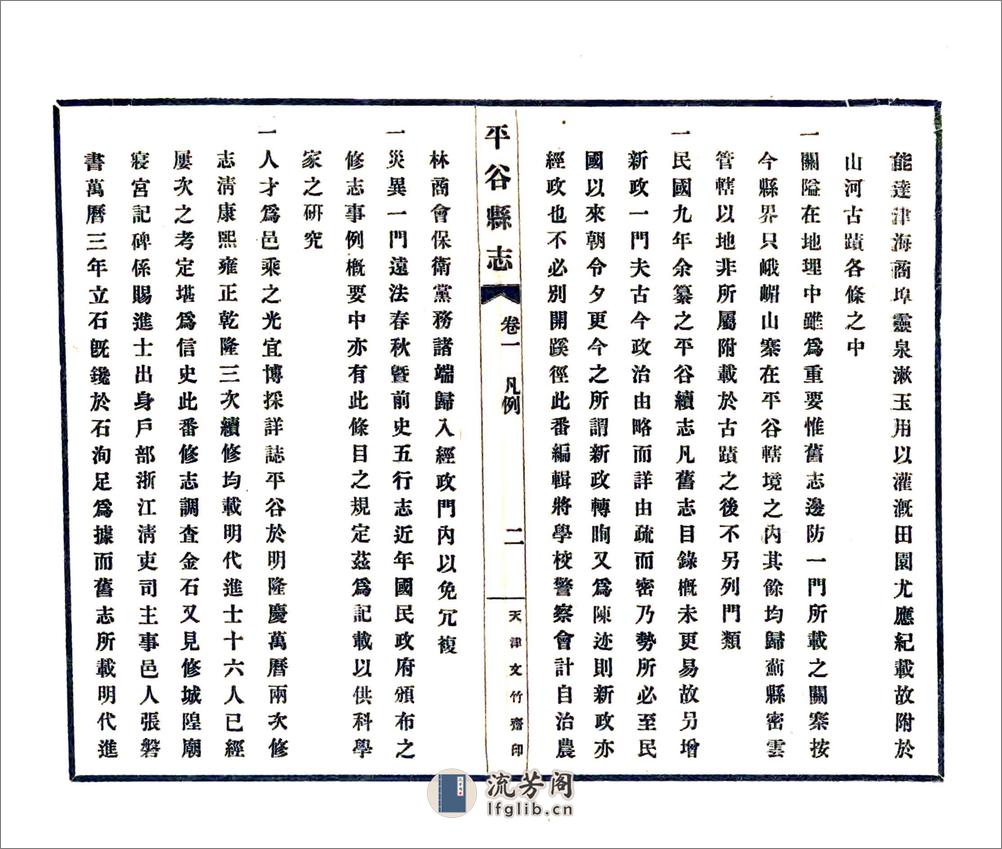 能達津海商埠靈泉漱玉用以灌溉田園尤應紀載故附於
山河古蹟各條之中
一關隘在地理中雖爲重要惟舊志邊防一門所載之關寨按
今縣界只峨嵋山寨在平谷轄境之內其餘均歸薊縣密雲
管轄以地非所屬附載於古蹟之後不另列門類
一民國九年余纂之平谷續志凡舊志目錄概未更易故另增
新政一門夫古今政治由略而詳由疏而密乃勢所必至民
國以來朝令夕更今之所謂新政轉眴又爲陳迹則新政亦
經政也不必別開蹊徑此番編輯將學校警察會計自治農
平谷縣志
卷一 凡例
二
天津文竹齋印
林商會保衛黨務諸端歸入經政門內以免冗複
一災異一門遠法春秋暨前史五行志近年國民政府頒布之
修志事例概要中亦有此條目之規定茲爲記載以供科學
家之研究
一人才爲邑乘之光宜博採詳誌平谷於明隆慶萬曆兩次修
志淸康熙雍正乾隆三次續修均載明代進士十六人已經
屢次之考定堪爲信史此番修志調查金石又見修城隍廟
寢宮記碑係賜進士出身戶部浙江淸吏司主事邑人張磐
書萬曆三年立石旣鑱於石洵足爲據而舊志所載明代進
流芳阁
lfglib.cn